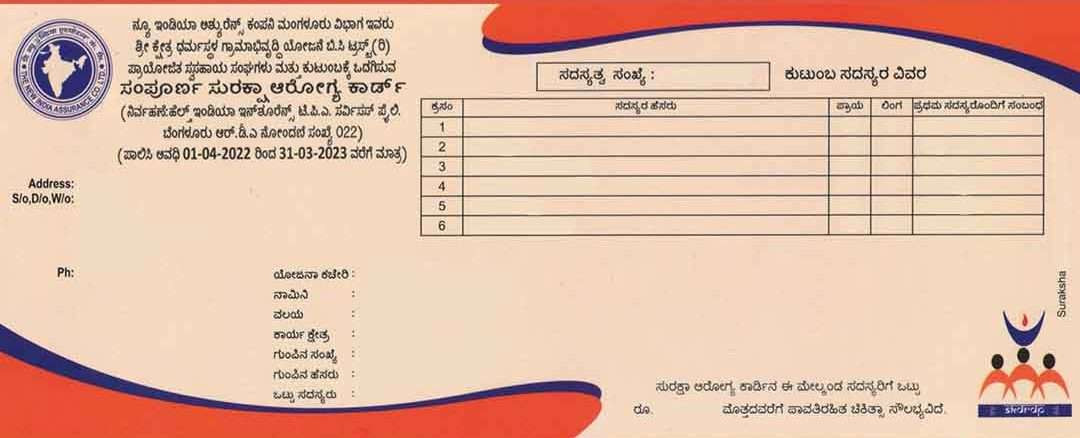 THE NEW INDIA ASSURANCE CO. LTD.
ನ್ಯೂ ಇಂಡಿಯಾ ಆಶ್ಯುರೆನ್ಸ್ ಕಂಪನಿ ಮಂಗಳೂರು ವಿಭಾಗ ಇವರು
ಶ್ರೀ ಕ್ಷೇತ್ರ ಧರ್ಮಸ್ಥಳ ಗ್ರಾಮಾಭಿವೃದ್ಧಿ ಯೋಜನೆ ಬಿ.ಸಿ ಟ್ರಸ್ಟ್(ರಿ)
ಪ್ರಾಯೋಜಿತ ಸ್ವಸಹಾಯ ಸಂಘಗಳು ಮತ್ತು ಕುಟುಂಬಕ್ಕೆ ಒದಗಿಸುವ
ಸಂಪೂರ್ಣ ಸುರಕ್ಷಾ ಆರೋಗ್ಯ ಕಾರ್ಡ್
(ನಿರ್ವಹಣೆ:ಹೆಲ್ತ್ ಇಂಡಿಯಾ ಇನ್‌ಶೂರೆನ್ಸ್ ಟಿ.ಪಿ.ಎ. ಸರ್ವಿಸಸ್ ಪ್ರೈ.ಲಿ.
ಬೆಂಗಳೂರು ಆರ್.ಡಿ.ಎ ನೋಂದಣಿ ಸಂಖ್ಯೆ 022)
(ಪಾಲಿಸಿ ಅವಧಿ 01-04-2022 ರಿಂದ 31-03-2023 ವರೆಗೆ ಮಾತ್ರ)
Address:
S/o,D/o,W/o:
Ph:
ಯೋಜನಾ ಕಚೇರಿ :
ನಾಮಿನಿ :
ವಲಯ :
ಕಾರ್ಯ ಕ್ಷೇತ್ರ :
ಗುಂಪಿನ ಸಂಖ್ಯೆ :
ಗುಂಪಿನ ಹೆಸರು :
ಒಟ್ಟು ಸದಸ್ಯರು :
ಸದಸ್ಯತ್ವ ಸಂಖ್ಯೆ : ಕುಟುಂಬ ಸದಸ್ಯರ ವಿವರ
ಕ್ರಸಂ ಸದಸ್ಯರ ಹೆಸರು ಪ್ರಾಯ ಲಿಂಗ ಪ್ರಥಮ ಸದಸ್ಯರೊಂದಿಗೆ ಸಂಬಂಧ
1
2
3
4
5
6
Suraksha
ಸುರಕ್ಷಾ ಆರೋಗ್ಯ ಕಾರ್ಡಿನ ಈ ಮೇಲ್ಕಂಡ ಸದಸ್ಯರಿಗೆ ಒಟ್ಟು
ರೂ. ಮೊತ್ತದವರೆಗೆ ಪಾವತಿರಹಿತ ಚಿಕಿತ್ಸಾ ಸೌಲಭ್ಯವಿದೆ.
skdrdp